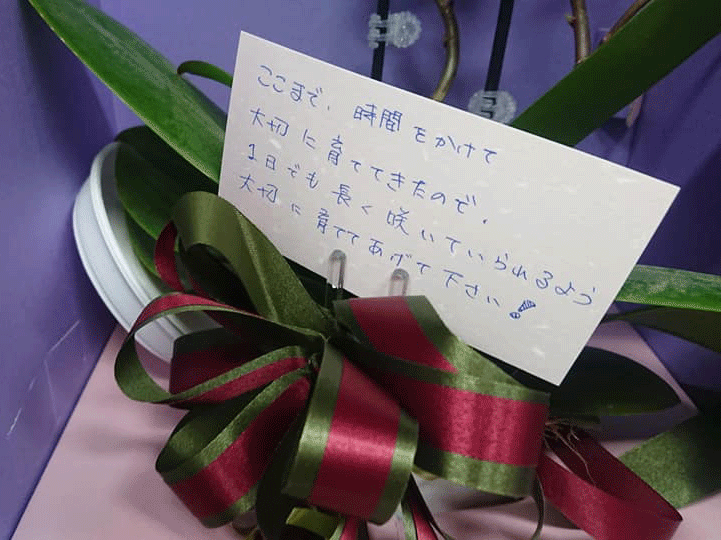 ここまで、時間をかけて
大切に育ててきたので、
1日でも長く咲いていられるよう
大切に育ててあげて下さい!